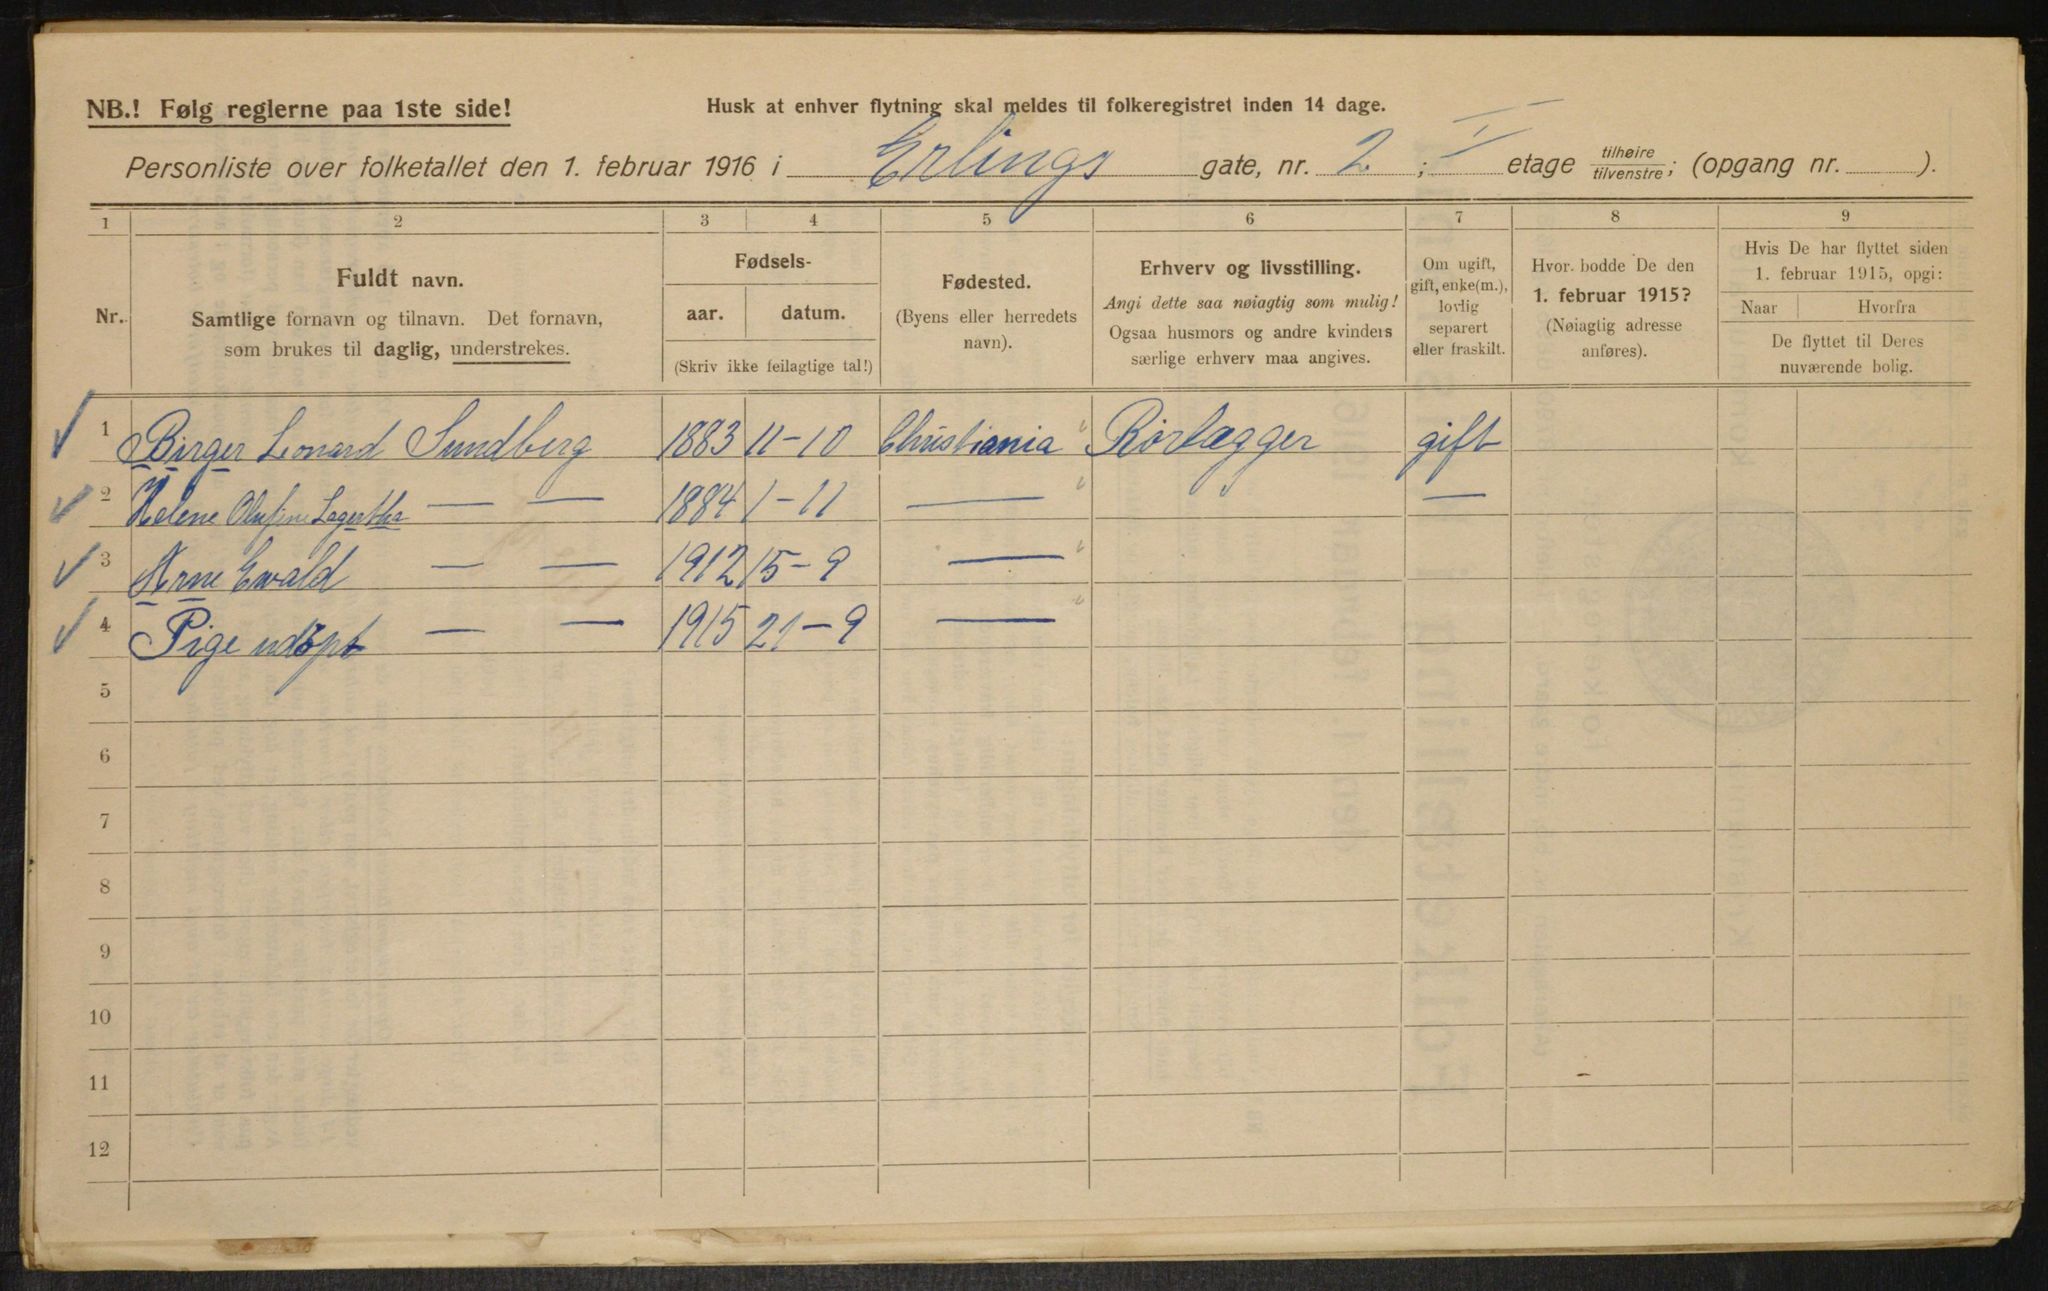 NB.! Følg reglerne paa 1ste side!
Husk at enhver flytning skal meldes til folkeregistret inden 14 dage.
Personliste over folketallet den 1. februar 1916 i Erlings gate, nr. 2 ; II etage tilhøire/tilvenstre; (opgang nr. ).
1 2 3 4 5 6 7 8 9
Nr.
Fuldt navn.
Samtlige fornavn og tilnavn. Det fornavn,
som brukes til daglig, understrekes.
Fødsels-
aar. datum.
(Skriv ikke feilagtige tal!)
Fødested.
(Byens eller herredets
navn).
Erhverv og livsstilling.
Angi dette saa nøiagtig som mulig!
Ogsaa husmors og andre kvinders
særlige erhverv maa angives.
Om ugift,
gift, enke(m.),
lovlig
separert
eller fraskilt.
Hvor bodde De den
1. februar 1915?
(Nøiagtig adresse
anføres).
Hvis De har flyttet siden
1. februar 1915, opgi:
Naar Hvorfra
De flyttet til Deres
nuværende bolig.
1 Birger Leonard Sundberg 1883 11-10 Christiania Rörlægger gift
2 Helene Olufine Lagertha — — 1884 1-11 — —
3 Arne Ewald — — 1912 15-9 —
4 Pige udöpt — — 1915 21-9 —
5
6
7
8
9
10
11
12